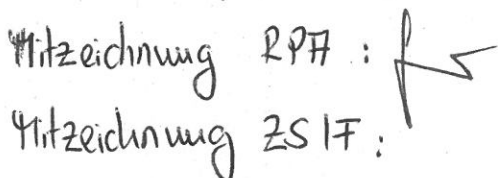 Mitzeichnung RPA :
Mitzeichnung ZS IF :